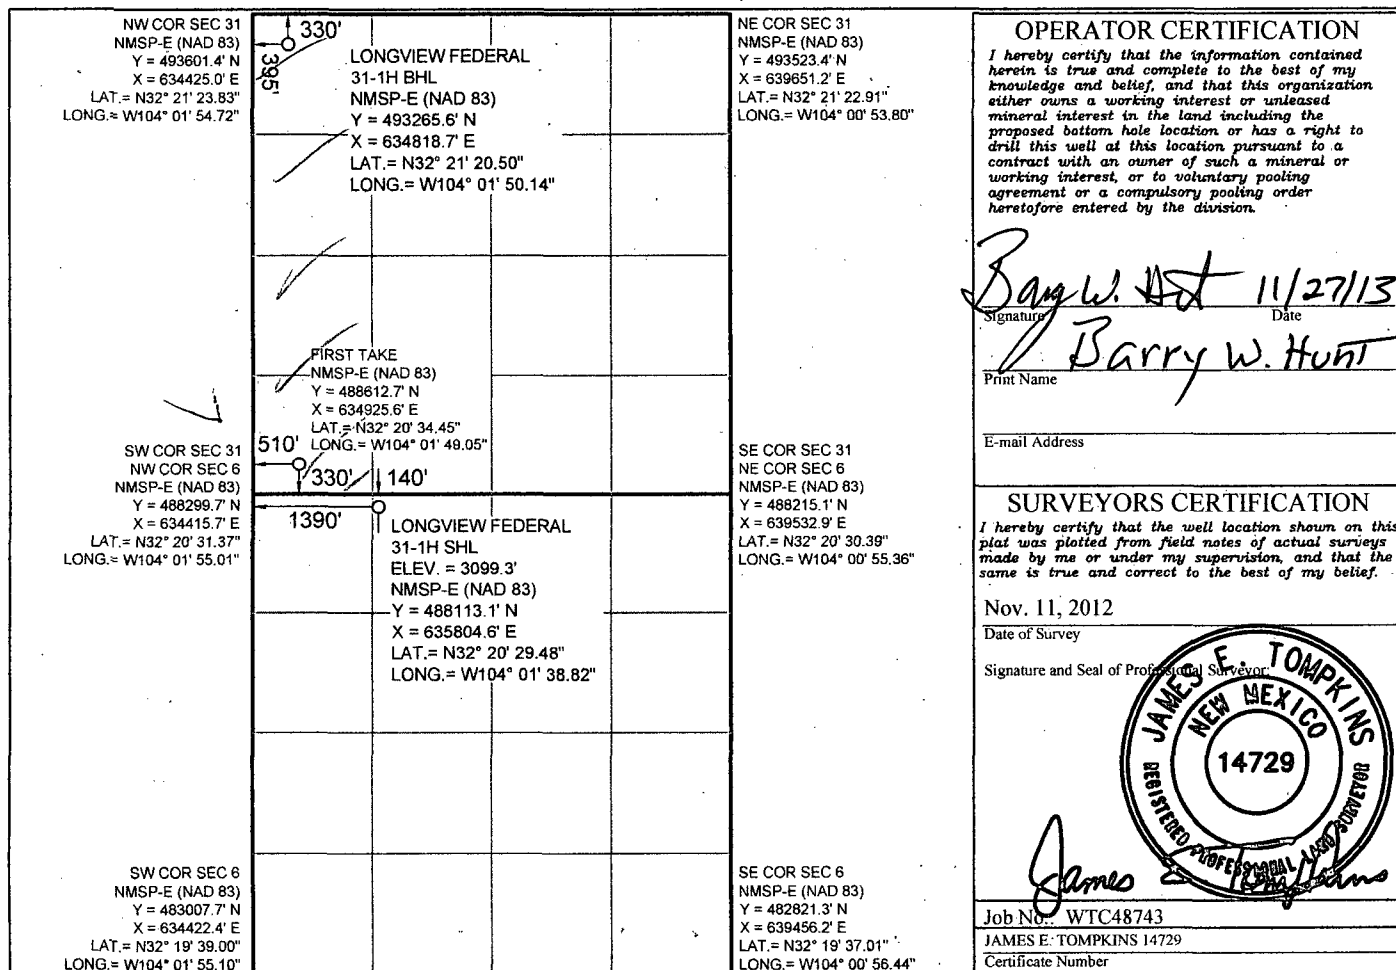 NW COR SEC 31
NMSP-E (NAD 83)
Y = 493601.4' N
X = 634425.0' E
LAT.= N32° 21' 23.83"
LONG.= W104° 01' 54.72"
330'
395'
LONGVIEW FEDERAL
31-1H BHL
NMSP-E (NAD 83)
Y = 493265.6' N
X = 634818.7' E
LAT.= N32° 21' 20.50"
LONG.= W104° 01' 50.14"
NE COR SEC 31
NMSP-E (NAD 83)
Y = 493523.4' N
X = 639651.2' E
LAT.= N32° 21' 22.91"
LONG.= W104° 00' 53.80"
FIRST TAKE
NMSP-E (NAD 83)
Y = 488612.7' N
X = 634925.6' E
LAT.= N32° 20' 34.45"
LONG.= W104° 01' 49.05"
510'
330'
140'
1390'
SW COR SEC 31
NW COR SEC 6
NMSP-E (NAD 83)
Y = 488299.7' N
X = 634415.7' E
LAT.= N32° 20' 31.37"
LONG.= W104° 01' 55.01"
SE COR SEC 31
NE COR SEC 6
NMSP-E (NAD 83)
Y = 488215.1' N
X = 639532.9' E
LAT.= N32° 20' 30.39"
LONG.= W104° 00' 55.36"
LONGVIEW FEDERAL
31-1H SHL
ELEV. = 3099.3'
NMSP-E (NAD 83)
Y = 488113.1' N
X = 635804.6' E
LAT.= N32° 20' 29.48"
LONG.= W104° 01' 38.82"
SW COR SEC 6
NMSP-E (NAD 83)
Y = 483007.7' N
X = 634422.4' E
LAT.= N32° 19' 39.00"
LONG.= W104° 01' 55.10"
SE COR SEC 6
NMSP-E (NAD 83)
Y = 482821.3' N
X = 639456.2' E
LAT.= N32° 19' 37.01"
LONG.= W104° 00' 56.44"
OPERATOR CERTIFICATION
I hereby certify that the information contained
herein is true and complete to the best of my
knowledge and belief, and that this organization
either owns a working interest or unleased
mineral interest in the land including the
proposed bottom hole location or has a right to
drill this well at this location pursuant to a
contract with an owner of such a mineral or
working interest, or to voluntary pooling
agreement or a compulsory pooling order
heretofore entered by the division.
11/27/13
Signature Date
Barry W. Hunt
Print Name
E-mail Address
SURVEYORS CERTIFICATION
I hereby certify that the well location shown on this
plat was plotted from field notes of actual surveys
made by me or under my supervision, and that the
same is true and correct to the best of my belief.
Nov. 11, 2012
Date of Survey
Signature and Seal of Professional Surveyor:
JAMES E. TOMPKINS
NEW MEXICO
14729
REGISTERED PROFESSIONAL LAND SURVEYOR
James E Tompkins
Job No.: WTC48743
JAMES E. TOMPKINS 14729
Certificate Number